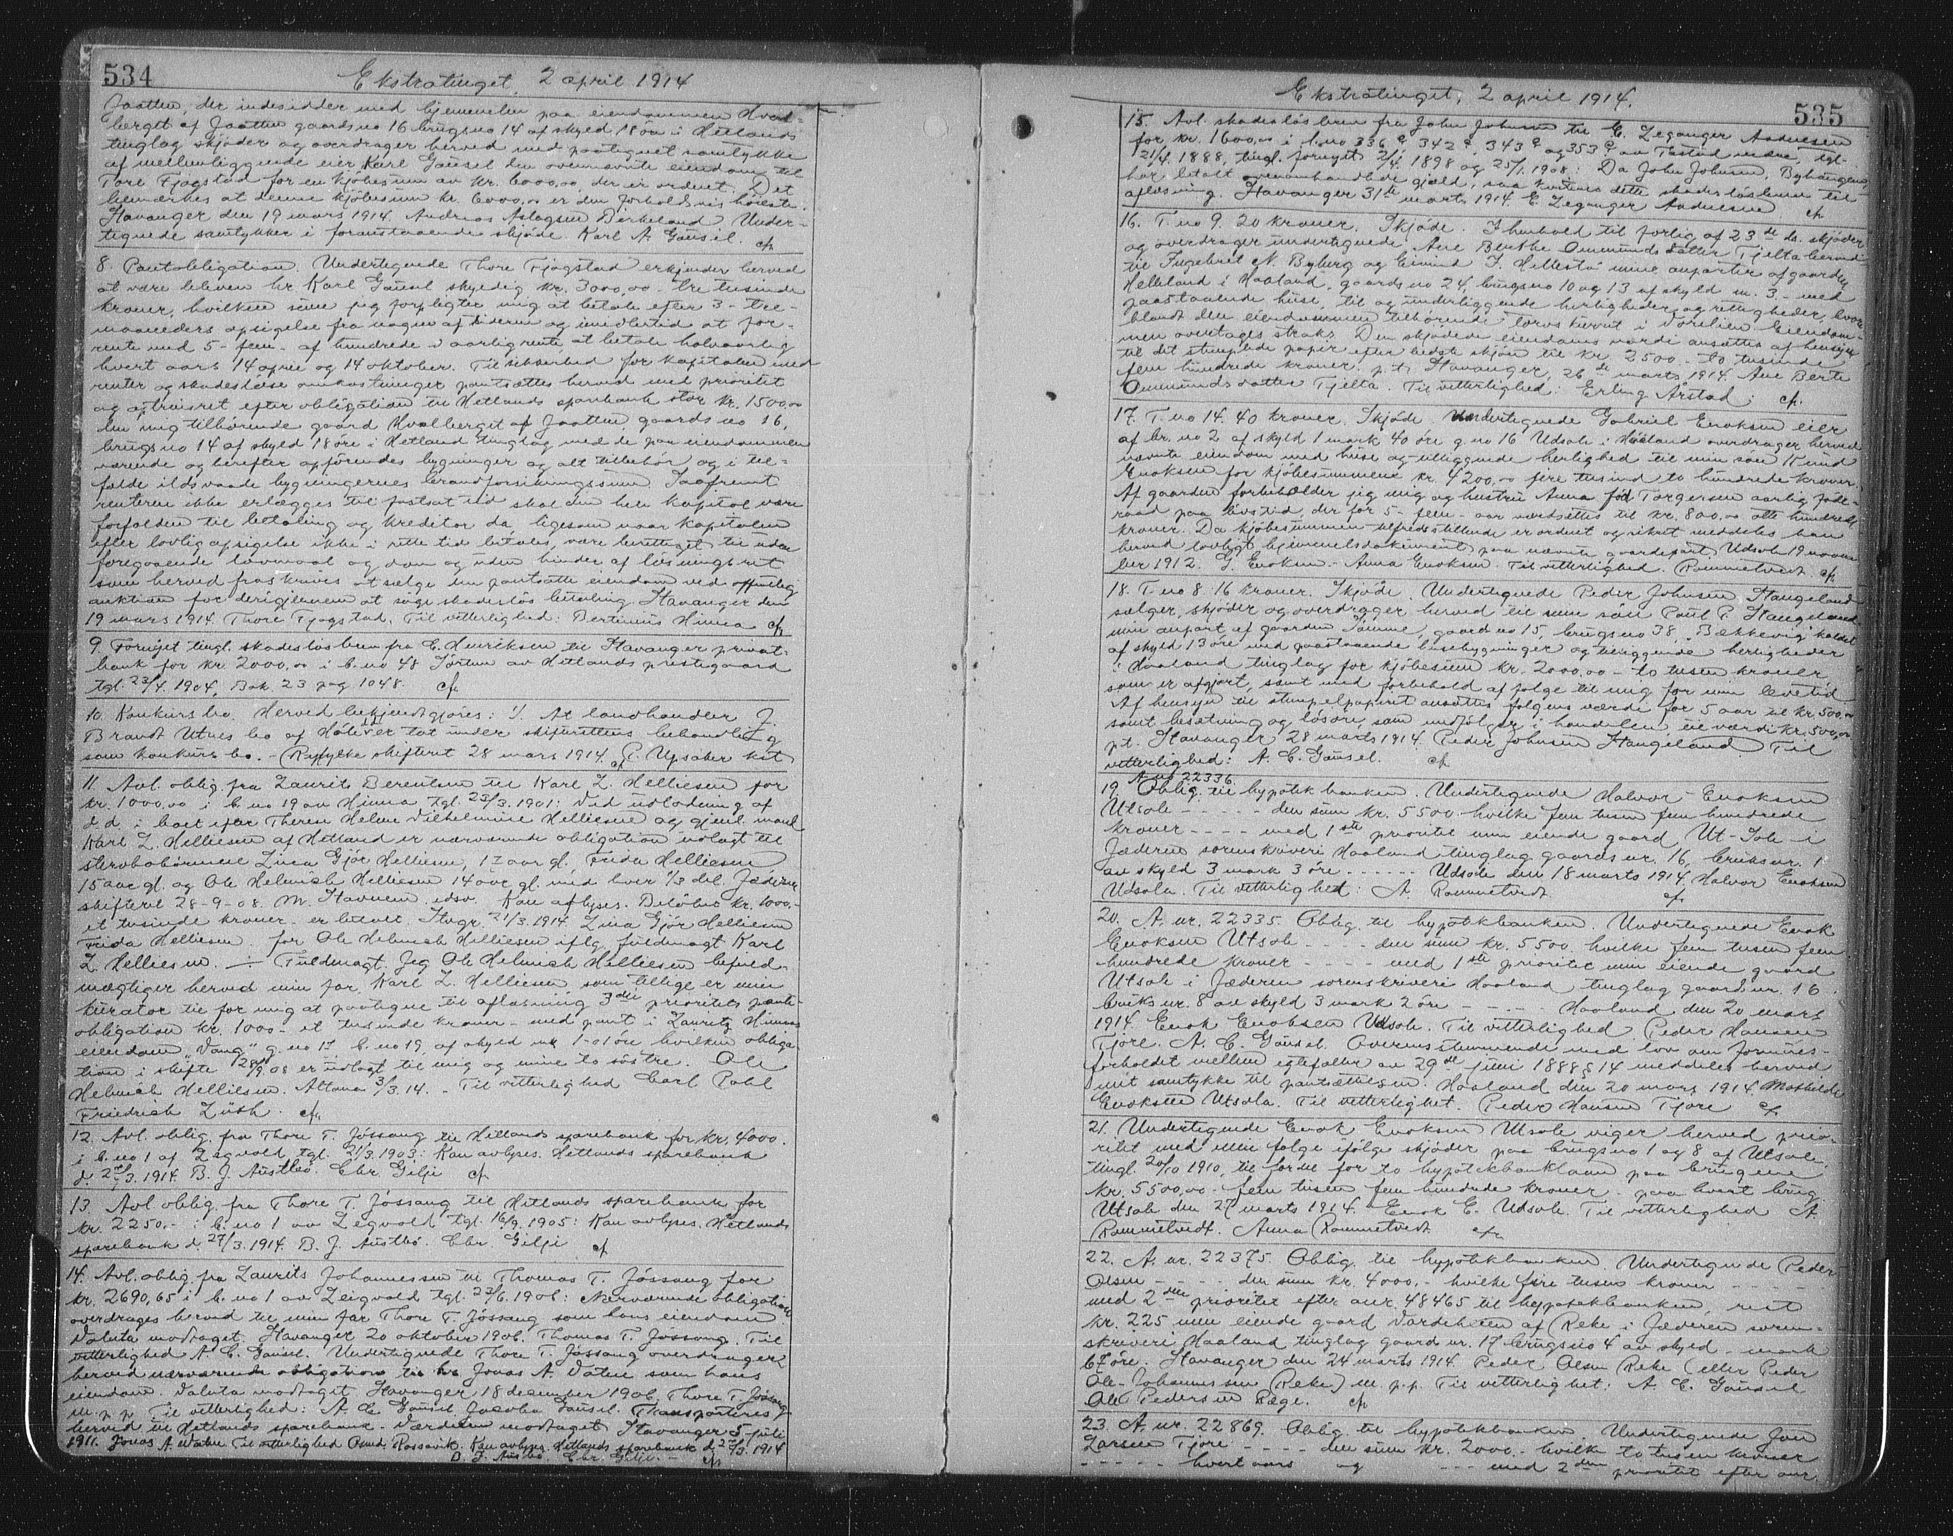 534
Ekstratinget, 2 april 1914
Jaatten, der indesidder med hjemmelen paa eiendommen Hval-
berget af Jaatten gaardsno 16 brugsno 14 af skyld 18 øre i Hetlands
tinglag skjøder og overdrager herved med paategnet samtykke
af mellemliggende eier Karl Gausel den ovennævnte eiendom til
Tore Fjogstad for en kjøbesum av kr. 6000,00 der er ordnet. Det
bemærkes at denne kjøbesum kr. 6000,00 er den forholdsvis høieste.
Stavanger den 19 mars 1914. Andreas Aslagsen Birkeland Under-
tegnede samtykker i foranstaaende skjøde. Karl A. Gausel. cfr
8. Pantobligation. Undertegnede Thore Fjogstad erkjender herved
at være bleven hr Karl Gausel skyldig kr. 3000,00 tre tusinde
kroner, hvilken sum jeg forpligter mig at betale efter 3 - tre -
maaneders opsigelse fra nogen af siderne og imidlertid at for-
rente med 5 - fem - af hundrede i aarlig rente at betale halvaarlig
hvert aars 14 april og 14 oktober. Til sikkerhed for kapitalen med
renter og skadesløse omkostninger pantsættes herved med prioritet
og optrinsret efter obligation til Hetlands sparebank stor kr. 1500,00
den mig tilhørende gaard Hvalberget af Jaatten, gaards no 16,
brugsno 14 af skyld 18 øre i Hetland tinglag med de paa eiendommen
værende og herefter opførendes bygninger og alt tilbehør og i til-
fælde ildsvaade bygningernes brandforsikringssum Saafremt
renterne ikke erlægges til fastsat tid skal den hele kapital være
forfalden til betaling og kreditor da, ligesom naar kapitalen
efter lovlig opsigelse ikke i rette tid betales, være berettiget til uden
foregaaende lovmaal og dom og uden hinder af løsningsret
som herved fraskrives at sælge den pantsatte eiendom ved offentlig
auktion for derigjennem at søge skadesløs betaling Stavanger den
19 mars 1914 Thore Fjogstad. Til vitterlighed: Bertinius Hinna cfr
9. Fornyet tingl. skadesløsbrev fra E. Henriksen til Stavanger privat-
bank for kr 2000,00 i b. no 48 Jørtun av Hetlands prestegaard
tgl. 23/4. 1904, Bok 23 pag 1048. cfr
10. Konkursbo. Herved bekjendtgjøres: 1/. At landhandler J.
Brandt Utnes bo af Høle er tat under skifterettens behandling
som konkursbo. - Ryfylke skifteret 28 mars 1914. P. Upsaker kst
11. Avl. oblig. fra Laurits Berentsen til Karl L. Helliesen for
kr. 1000,00 i b. no 19 av Hinna tgl. 23/3. 1901: Ved utlodning af
d. d. i boet efter Therese Helene Vilhelmine Helliesen og gjenl. mand
Karl L. Helliesen af Hetland er nærværende obligation utlagt til
stervbobørnene Lina Gjør Helliesen, 17 aar gl. Frida Helliesen
15 aar gl. og Ole Helmich Helliesen 14 aar gl. med hver 1/3 del. Jæderen
skifteret 28-9-08. M. Stavnem edsv. Kan aflyses. Beløbet kr. 1000,-
et tusinde kroner er betalt. Stvgr. 21/3. 1914. Lina Gjør Helliesen
Frida Helliesen. for Ole Helmich Helliesen iflg. fuldmagt Karl
L. Helliesen. ÷ Fuldmagt. Jeg Ole Helmich Helliesen befuld-
mægtiger herved min far Karl L. Helliesen som tillige er min
kurator til for mig at paategne til aflæsning 3die prioritets pant-
obligation kr. 1000- et tusinde kroner - med pant i Laurits Hinnas
eiendom "Vang" g. no 17 b. no 19, af skyld mk 1-01 øre hvilken obliga-
tion i skifte 28/9. 08 er utlagt til mig og mine to søstre. Ole
Helmich Helliesen. Altona 3/3. 14. - Til vitterlighed Carl Pahl
Friedrich Lüth. cfr
12. Avl. oblig. fra Thore T. Jøssang til Hetlands sparebank for kr. 4000.
i b. no 1 af Zeigvold tgl. 21/3. 1903: Kan avlyses. Hetlands sparebank
d. 27/3. 1914. B. J. Austbø. Chr Gilje cfr
13. Avl. oblig. fra Thore T. Jøssang til Hetlands sparebank for
kr. 2250,- i b. no 1 av Zeigvold tgl. 16/9. 1905: Kan avlyses. Hetlands
sparebank d. 27/3. 1914. B. J. Austbø. Chr. Gilje cfr
14. Avl. oblig. fra Laurits Johannessen til Thomas T. Jøssang for
kr. 2690,65 i b. no 1 av Zeigvold tgl. 23/6. 1906: Nærværende obligation
overdrages herved til min far Thore T. Jøssang som hans eiendom
Valuta modtaget. Stavanger 20 oktober 1906. Thomas T. Jøssang. Til
vitterlighed A. E. Gausel. Undertegnede Thore T. Jøssang overdrager
herved nærværende obligation til hr Jonas A. Vatne som hans
eiendom. Valuta modtaget Stavanger 18 desember 1906. Thore T. Jøssang
m. p. p. Til vitterlighed: A. E. Gausel Jacoba Gausel. Transporteres
herved til Hetlands sparebank. Værdien modtaget Stavanger 5 juli
1911. Jonas A. Vatne Til vitterlighed Rossavik. Kan avlyses. Hetlands sparebank d. 27/3. 1914
B. J. Austbø. Chr. Gilje. - cfr
Ekstratinget, 2 april 1914.
535
15. Avl. skadesløsbrev fra John Johnsen til E. Zeganger Andersen
for kr. 1600,00 i l. no 336 e 342 a, 343 e og 353 e av Tastad nedre, tgl.
21/4. 1888, tingl. fornyet 2/4. 1898 og 25/1. 1908: Da John Johnsen, Byhaugen,
har betalt ovenomhandlede gjæld, saa kvitteres dette skadesløsbrev til
aflæsning. Stavanger 31te marts 1914 E. Zeganger Andersen cfr
16. T. no 9. 20 kroner. Skjøde. I henhold til forlig af 23de ds. skjøder
og overdrager undertegnede Ane Berthe Ommundsdatter Tjelta herved
til Ingebret N. Byberg og Eivind J. Hellestø mine anparter af gaarden
Helleland i Haaland, gaards no 24, brugsno 10 og 13 af skyld m. 3 - med
paastaaende huse, til og underliggende herligheder og rettigheder, hvori-
blandt den eiendommen tilhørende torveskurret i Eiendom-
men overtages straks. Den skjødede eiendoms værdi ansættes af hensyn
til det stemplede papir efter bedste skjøn til kr. 2500 - to tusinde
fem hundrede kroner. p. t. Stavanger, 26de marts 1914. Ane Berte
Ommundsdatter Tjelta. Til vitterlighed: Erling Årstad. cfr.
17. T. no 14. 40 kroner. Skjøde Undertegnede Gabriel Enoksen eier
af br. no 2 af skyld 1 mark 40 øre g. no 16 Udsole i Haaland overdrager herved
nævnte eiendom med huse og tilliggende herlighed til min søn Knud
Enoksen for kjøbesummen kr. 4200,00 fire tusind to hundrede kroner.
Af gaarden forbeholder jeg mig og hustru Anna fød Torgersen aarlig føde-
raad paa livstid, der for 5 - fem - aar værdsættes til kr. 800,00 otte hundrede
kroner. Da kjøbesummen tilfredsstillende er ordnet og sikret meddeles han
herved lovligt hjemmelsdokument paa nævnte gaardpart. Udsole 19 novem-
ber 1912. G. Enoksen. Anna Enoksen. Til vitterlighed. Rommetvedt. cfr
18. T. no 8. 16 kroner. Skjøde. Undertegnede Peder Johnsen Haugeland
sælger, skjøder og overdrager herved til min søn Paul P. Haugeland
min anpart af gaarden Sømme, gaards no 15, brugsno 38 "Bækkevig" kaldet
af skyld 13 øre med paastaaende husebygninger og tilliggende herligheder
i Haaland tinglag for kjøbesum kr. 2000,00 - to tusen kroner,
som er afgjort, samt med forbehold af følge til mig for min levetid
Af hensyn til stempelpapiret ansættes følgens værdi for 5 aar til kr. 500,00
samt besætning og løsøre, som medfølger i handelen til værdi kr. 500,00
p. t. Stavanger 28 marts 1914. Peder Johnsen Haugeland Til
vitterlighed: A. E. Gausel. cfr
A. nr 22336.
19. Oblig. til hypotekbanken. Undertegnede Halvor Enoksen
Utsole - - - - - den sum kr. 5500 - hvilke fem tusen fem hundrede
kroner - - - - med 1ste prioritet min eiende gaard Ut-Sole - i
Jæderen sorenskriveri Haaland tinglag gaards nr. 16, bruksnr. 1
av skyld 3 mark 3 øre - - - - - Udsole den 18 marts 1914. Halvor Enoksen
Udsola. Til vitterlighed: A. Rommetvedt cfr
20. A. nr. 22335 Oblig. til hypotekbanken. Undertegnede Enok
Enoksen Utsole - - - - den sum kr. 5500 hvilke fem tusen fem
hundrede kroner - - - - med 1ste prioritet min eiende gaard
Utsole i Jæderen sorenskriveri Haaland tinglag gaards nr. 16
bruks nr. 8 av skyld 3 mark 2 øre - - - - Haaland den 20 mars
1914. Enok Enoksen Udsole. Til vitterlighed Peder Hansen
Tjore. A. E. Gausel. Overensstemmende med lov om formues-
forholdet mellem egtefæller av 29de juni 1888 § 14 meddeles herved
mit samtykke til pantsættelsen. Haaland den 20 mars 1914 Mathilde
Enoksen Utsola. Til vitterlighet. Peder Hansen Tjore cfr
21. Undertegnede Enok Enoksen Utsole viger herved prio-
ritet med min følge ifølge skjøder paa brugsno 1 og 8 af Utsole
tingl. 20/10 1910 til for for to hypotekbanklaan paa brugene
kr. 5500,00 - fem tusen fem hundrede kroner - paa hvert brug
Utsole den 27 marts 1914. Enok E. Udsole. Til vitterlighed A.
Rommetvedt. Anna Rommetvedt cfr
22. A. nr. 22375. Oblig. til hypotekbanken. Undertegnede Peder
Olsen - - - - den sum kr. 4000,- hvilke fire tusen kroner - - - -
med 2den prioritet efter a nr. 48465 til hypotekbanken, rest
kr. 225 min eiende gaard Vardeheien af Reke i Jæderen soren-
skriveri Haaland tinglag gaard nr. 17 brugsno 4 av skyld - mark
67 øre. Stavanger den 24 marts 1914. Peder Olsen Reke (eller Peder
Ole Johannessen Reke) m. p. p. Til vitterlighet: A. E. Gausel
Ole Pedersen Bøge. cfr
23. A. nr. 22869. Oblig. til hypotekbanken. Undertegnede Jon
Larsen Tjore - - - - den sum kr. 2000 - hvilke to tusen kroner
- - - - - hvert aars og - - - med 2den prioritet efter anr.